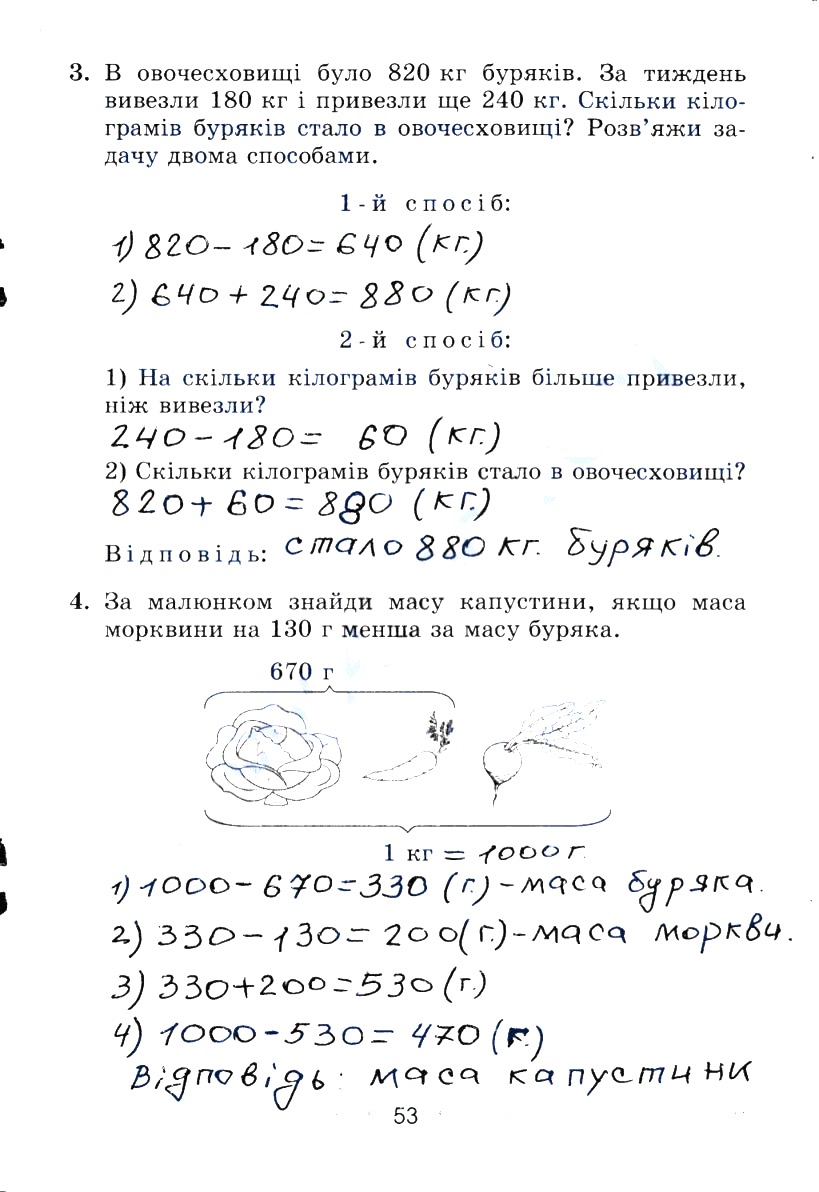 3. В овочесховищі було 820 кг буряків. За тиждень
вивезли 180 кг і привезли ще 240 кг. Скільки кіло-
грамів буряків стало в овочесховищі? Розв'яжи за-
дачу двома способами.
1-й спосіб:
1) 820 - 180 = 640 (кг.)
2) 640 + 240 = 880 (кг.)
2-й спосіб:
1) На скільки кілограмів буряків більше привезли,
ніж вивезли?
240 - 180 = 60 (кг.)
2) Скільки кілограмів буряків стало в овочесховищі?
820 + 60 = 880 (кг.)
Відповідь: стало 880 кг. буряків.
4. За малюнком знайди масу капустини, якщо маса
морквини на 130 г менша за масу буряка.
670 г
1 кг = 1000 г.
1) 1000 - 670 = 330 (г.) - маса буряка.
2) 330 - 130 = 200 (г.) - маса моркви.
3) 330 + 200 = 530 (г.)
4) 1000 - 530 = 470 (г.)
Відповідь: маса капустини
53